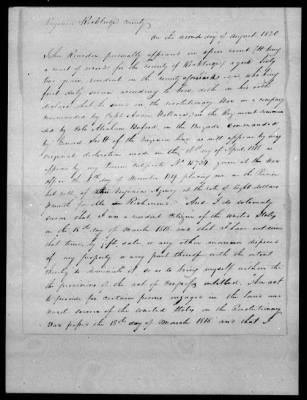 Virginia Rockbridge County
On the second day of August 1820
John Reardon personally appeared in open court (it being
a court of record for the county of Rockbridge) aged sixty
two years, resident in the county aforesaid, who being
first duly sworn according to law, doth on his oath
declare, that he serve in the revolutionary War in a company
commanded by Capt in the Regiment command
ed by Colo Abraham Buford in the Brigade commanded
by General Scott of the Virginia line as will appear by my
original declaration made on the of April 1818 as
appears by my Pension certificate No 15,734 given at the War
office on of December 1819 placing me on the Pension
list roll of Virginia Agency at the rate of Eight dollars
month payable in Richmond. And I do solemnly
swear that I was a resident citizen of the United States
on the 18th day of March 1818 and that I have not since
that time, by gift sale or any other manner disposed
of my property or any part thereof with the intent
thereby to diminish it so as to bring myself within the
the provisions of the act of Congress entitled An act
to provide for certain persons engaged in the land and
naval service of the United States in the Revolutionary
War passed the 18th day of March 1818 and that I